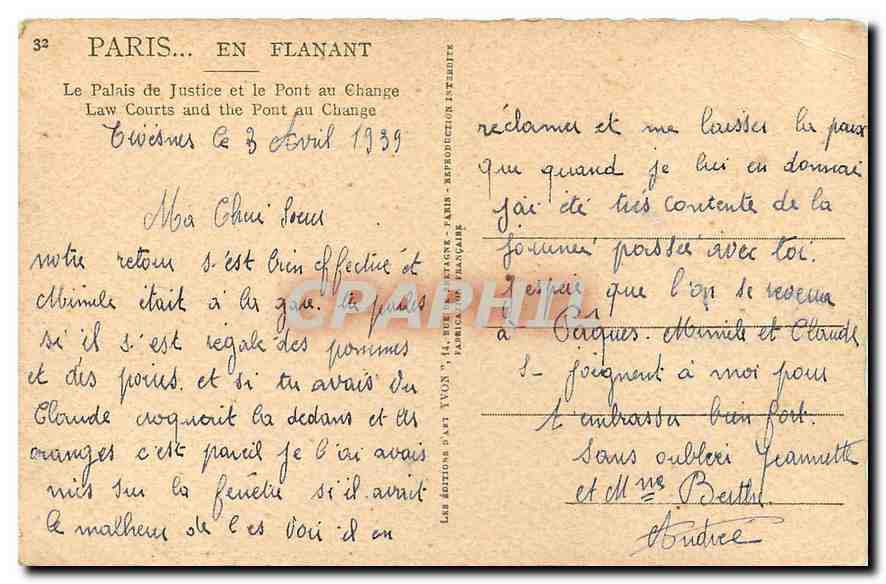 32 PARIS... EN FLANANT
Le Palais de Justice et le Pont au Change
Law Courts and the Pont au Change
le 3 Avril 1939
Ma Cheri Soeur
notre retour s'est bien effectué et
Mimile était à la gare. tu parles
si il s'est régale des pommes
et des poires. et si tu avais vu
Claude croquait la dedans et les
oranges c'est pareil je l'ai avais
mis sur la fenêtre si il avait
le malheur de les voir il en
réclamer et me laisser la paix
que quand je lui en donnai
j'ai été très contente de la
journée passée avec toi.
J'espère que l'on se reverra
à Pâques. Mimile et Claude
se joignent à moi pour
t'embrasser bien fort.
sans oublier Jeannette
et Mme Berthe
Andrée
LES ÉDITIONS D'ART YVON", 14, RUE DE BRETAGNE - PARIS - REPRODUCTION INTERDITE
FABRICATION FRANÇAISE
CPARHII